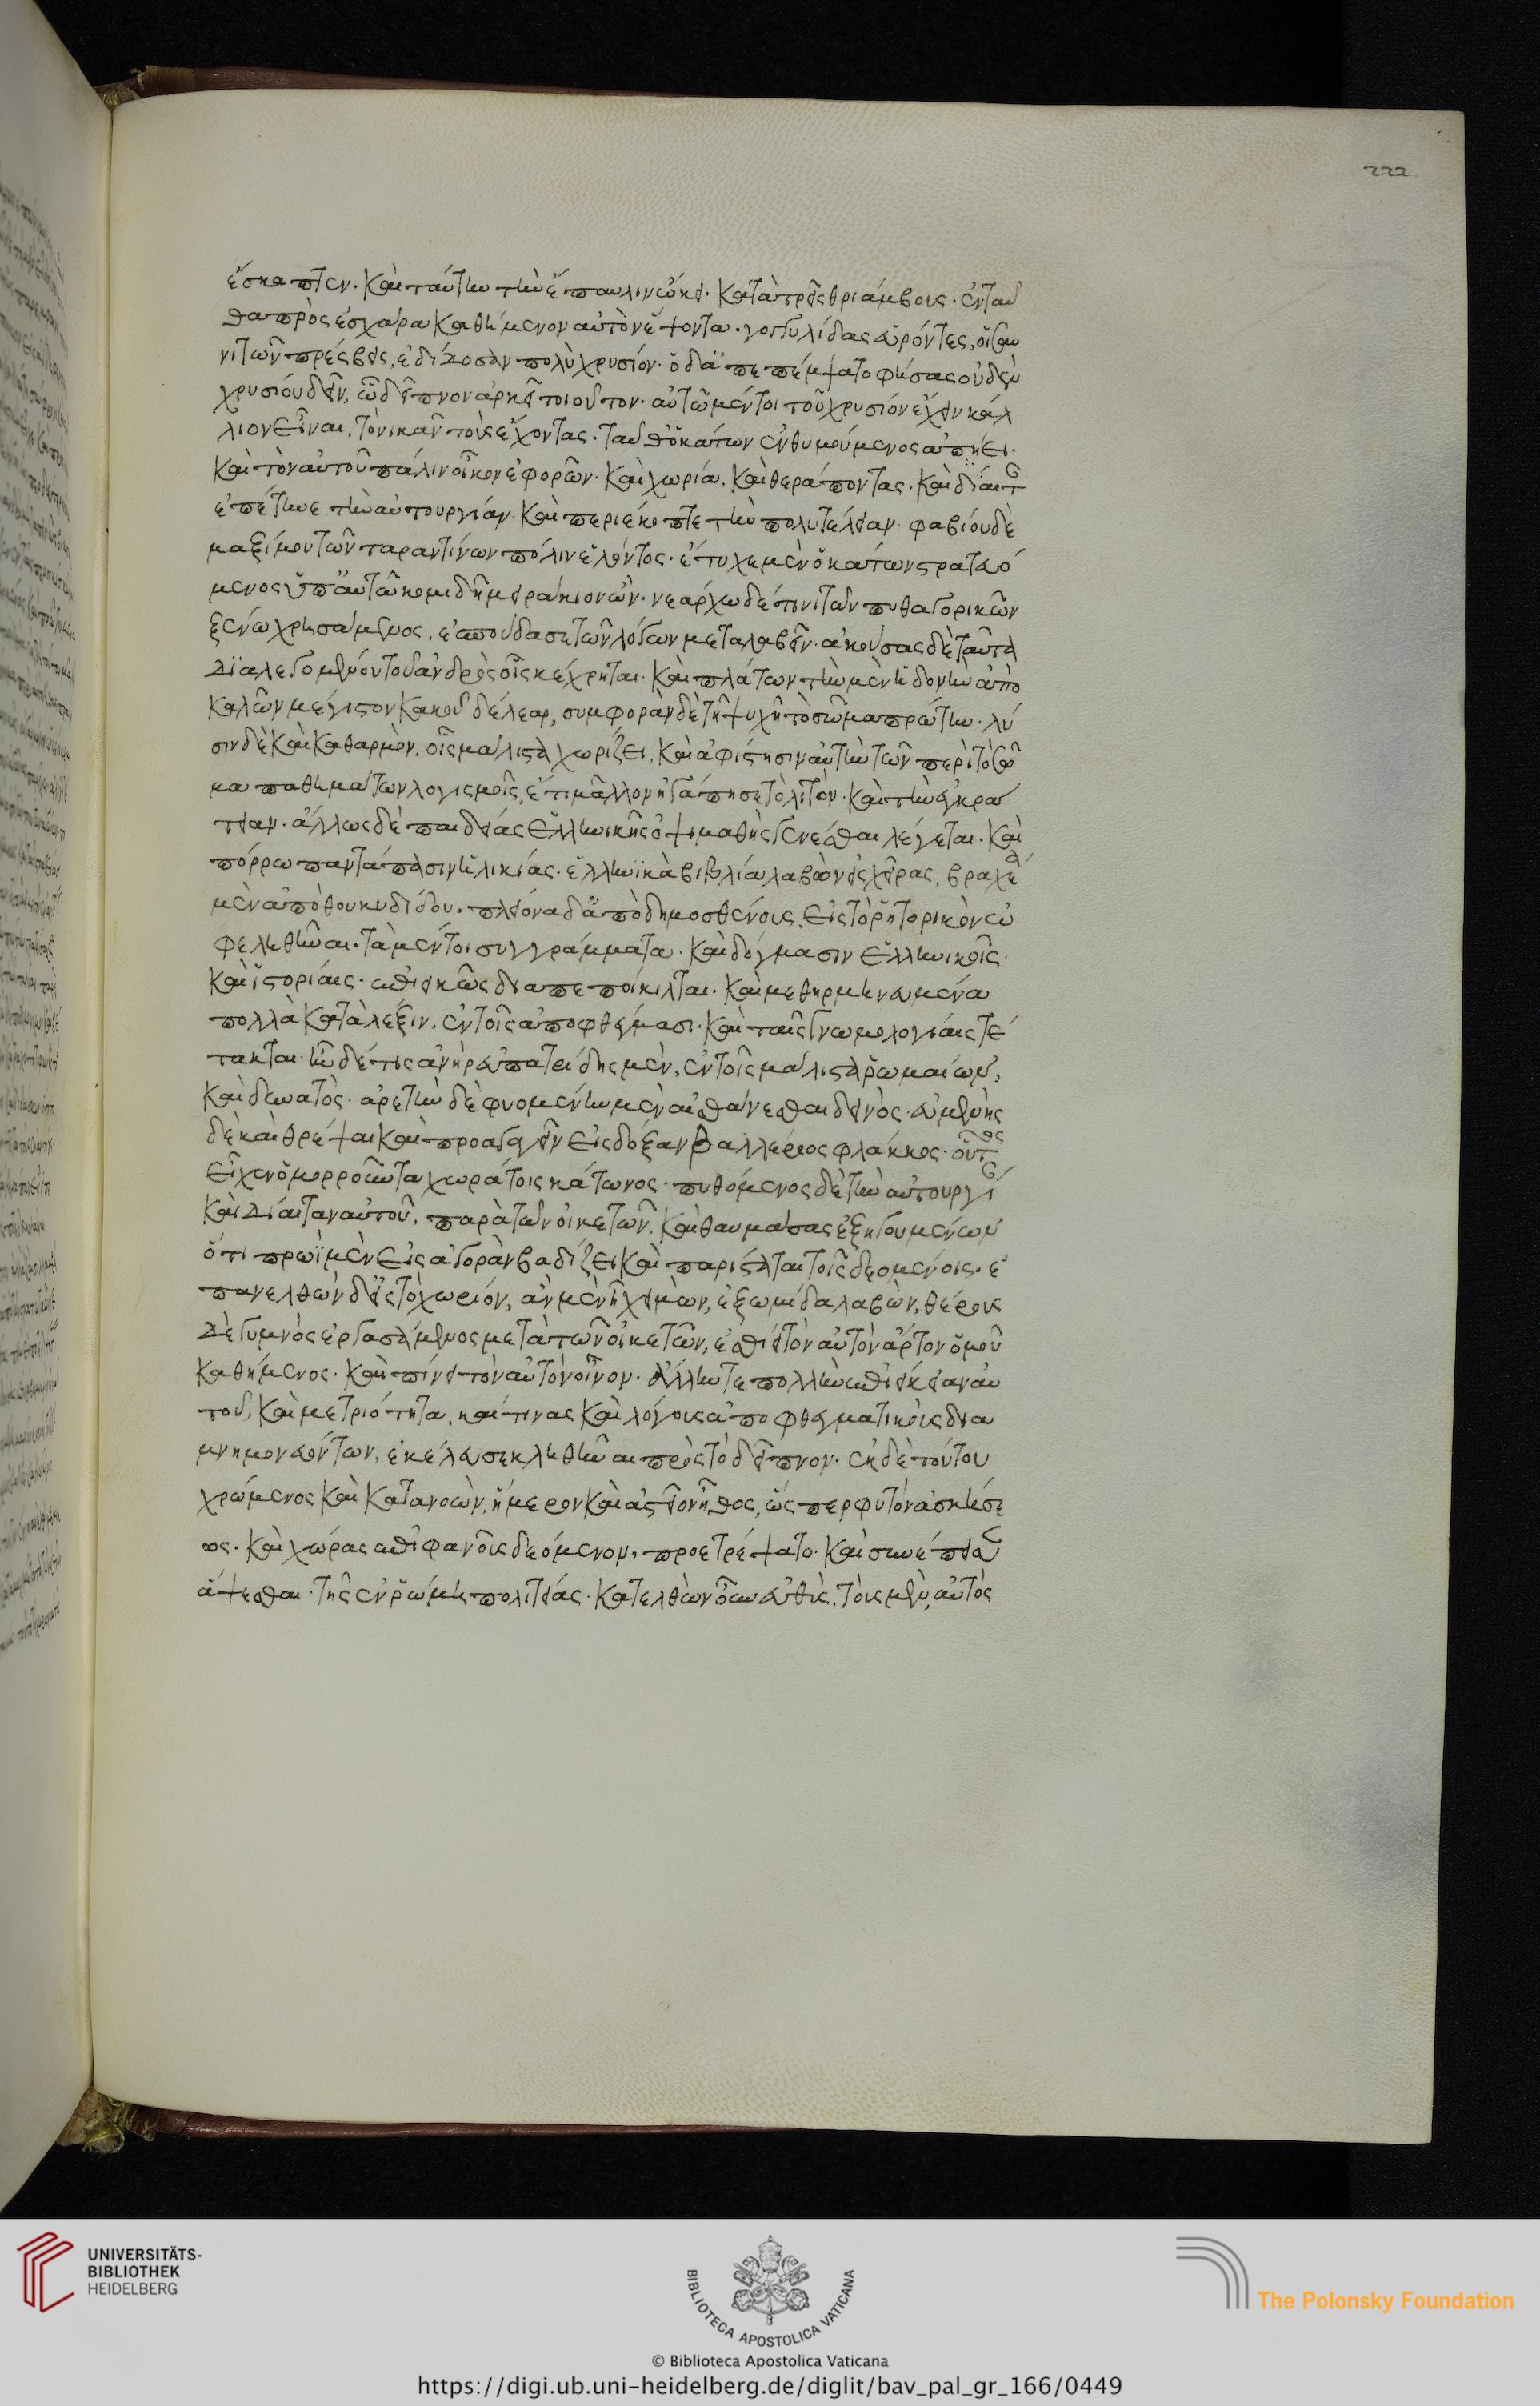 222
ἔσκαπτεν· καὶ ταύτην τὴν ἔπαυλιν ᾤκει· κατὰ τρεῖς θριάμβους· ἐνταῦ
θα πρὸς ἐσχάρα καθήμενον αὐτὸν ἕψοντα· γογγυλίδας εὑρόντες, οἱ σαυ
νιτῶν πρέσβεις, ἐδίδοσαν πολὺ χρυσίον· ὁ δ' ἀπεπέμψατο φήσας οὐδὲν
χρυσίου δεῖν, ὧ δεῖπνον ἀρκεῖ τοιοῦτον· αὐτῶ μέντοι τοῦ χρυσίον ἔχειν κάλ
λιον εἶναι, τὸ νικᾶν τοὺς ἔχοντας· ταῦθ' ὁ κάτων ἐνθυμούμενος ἀπήει·
καὶ τὸν αὐτοῦ πάλιν οἶκον ἐφορῶν· καὶ χωρία, καὶ θεράποντας· καὶ δίαιτ
ἐπέτεινε τὴν αὐτουργίαν· καὶ περιέκοπτε τὴν πολυτέλειαν· φαβίου δὲ
μαξίμου τῶν ταραντίνων πόλιν ἑλόντος· ἔτυχε μὲν ὁ κάτων στρατευό
μενος ὑπ' αὐτῶ κομιδῆ μειράκιον ὤν· νεάρχω δέ τινι τῶν πυθαγορικῶν
ξένω χρησάμενος, ἐσπούδασε τῶν λόγων μεταλαβεῖν· ἀκούσας δὲ ταῦτα
διαλεγομένου τοῦ ἀνδρὸς οἷς κέχρηται· καὶ πλάτων τὴν μὲν ἡδονὴν ἀπο
καλῶν μέγιστον κακοῦ δέλεαρ, συμφορὰν δὲ τῆ ψυχῆ τὸ σῶμα πρώτην· λύ
σιν δὲ καὶ καθαρμὸν, οἷς μάλιστα χωρίζει, καὶ ἀφίστησιν αὐτὴν τῶν περὶ τὸ σῶ
μα παθημάτων λογισμοῖς, ἔτι μᾶλλον ἠγάπησε τὸ λιτὸν· καὶ τὴν ἐγκρά
τειαν· ἄλλως δὲ παιδείας ἑλληνικῆς ὀψιμαθὴς γενέσθαι λέγεται· καὶ
πόρρω παντάπασιν ἡλικίας· ἑλληνικὰ βιβλία λαβὼν εἰς χεῖρας, βραχέα
μὲν ἀπὸ θουκυδίδου· πλείονα δ' ἀπὸ δημοσθένους, εἰς τὸ ῥητορικὸν ὠ
φεληθῆναι· τὰ μέντοι συγγράμματα· καὶ δόγμασιν ἑλληνικοῖς·
καὶ ἱστορίαις· ἐπιεικῶς διαπεποίκιλται· καὶ μεθηρμηνευμένα
πολλὰ κατὰ λέξιν, ἐν τοῖς ἀποφθέγμασι· καὶ ταῖς γνωμολογίαις τέ
τακται· ἦν δέ τις ἀνὴρ εὐπατρίδης μὲν, ἐν τοῖς μάλιστα ῥωμαίων,
καὶ δυνατὸς· ἀρετὴν δὲ φυομένην μὲν αἰσθάνεσθαι δεινὸς· εὐμενὴς
δὲ καὶ θρέψαι καὶ προαγαγεῖν εἰς δόξαν βαλλέριος φλάκκος· οὗτος
εἶχεν ὁμορροῦντα χωρία τοῖς κάτωνος· πυθόμενος δὲ τὴν αὐτουργί
καὶ δίαιταν αὐτοῦ, παρὰ τῶν οἰκετῶν, καὶ θαυμάσας ἐξηγουμένων
ὅτι πρωῒ μὲν εἰς ἀγορὰν βαδίζει καὶ παρίσταται τοῖς δεομένοις· ἐ
πανελθὼν δ' εἰς τὸ χωρίον, ἂν μὲν ἦ χειμὼν, ἐξωμίδα λαβὼν, θέρους
δὲ γυμνὸς ἐργασάμενος μετὰ τῶν οἰκετῶν, ἐσθίει τὸν αὐτὸν ἄρτον ὁμοῦ
καθήμενος· καὶ πίνει τὸν αὐτὸν οἶνον· ἄλλην τε πολλὴν ἐπιείκειαν αὐ
τοῦ, καὶ μετριότητα, καί τινας καὶ λόγους ἀποφθεγματικοὺς δια
μνημονευόντων, ἐκέλευσε κληθῆναι πρὸς τὸ δεῖπνον· ἐκ δὲ τούτου
χρώμενος καὶ κατανοῶν, ἥμερον καὶ ἀστεῖον ἦθος, ὥσπερ φυτὸν ἀσκήσε
ως· καὶ χώρας ἐπιφανοῦς δεόμενον, προετρέψατο· καὶ συνέπεισ
ἅψασθαι· τῆς ἐν ῥώμη πολιτείας· κατελθὼν οὖν εὐθὺς, τοὺς μὲν, αὐτὸς
UNIVERSITÄTS-
BIBLIOTHEK
HEIDELBERG
BIBLIOTECA APOSTOLICA VATICANA
The Polonsky Foundation
© Biblioteca Apostolica Vaticana
https://digi.ub.uni-heidelberg.de/diglit/bav_pal_gr_166/0449